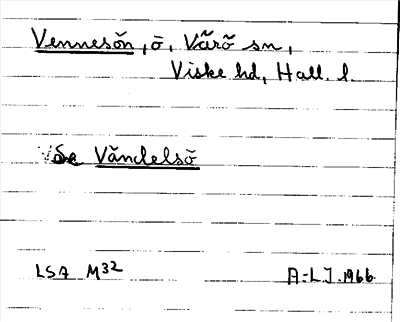 Vennesön, ö, Värö sn,
Viske hd, Hall. l.
Se Vändelsö
LSA M32
A:LJ. 1966.